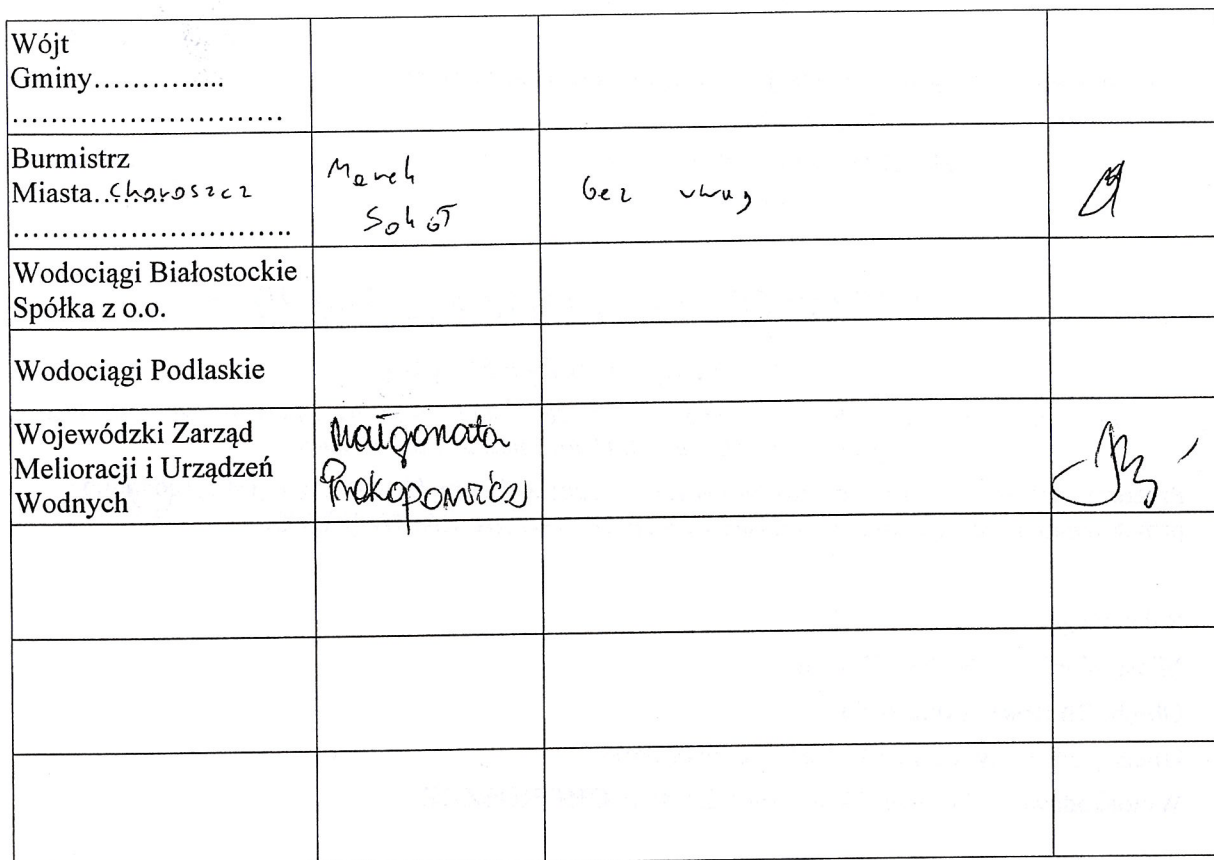 Wójt
Gminy.................
.............................
Burmistrz
Miasta..Choroszcz
.............................
Marek
Sokół
bez uwag
Wodociągi Białostockie
Spółka z o.o.
Wodociągi Podlaskie
Wojewódzki Zarząd
Melioracji i Urządzeń
Wodnych
Małgorzata
Prokopowicz